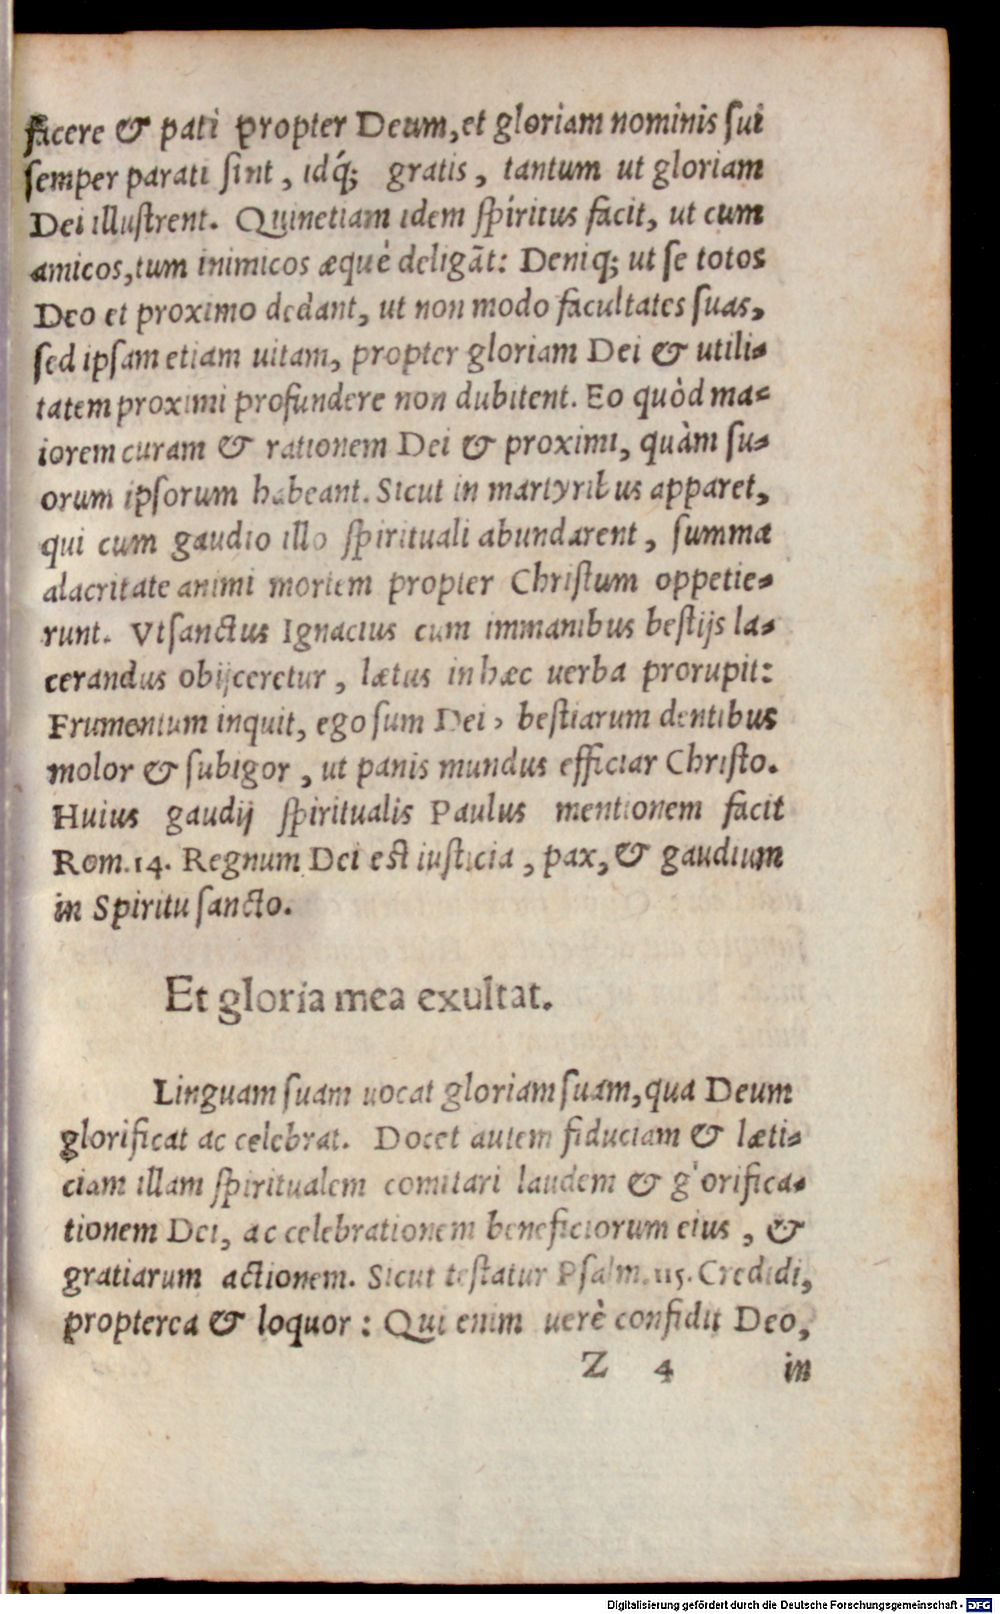 facere & pati propter Deum, et gloriam nominis sui
semper parati sint, idq́; gratis, tantum ut gloriam
Dei illustrent. Quinetiam idem spiritus facit, ut cum
amicos, tum inimicos æquè deligãt: Deniq; ut se totos
Deo et proximo dedant, ut non modo facultates suas,
sed ipsam etiam uitam, propter gloriam Dei & utili-
tatem proximi profundere non dubitent. Eo quòd ma-
iorem curam & rationem Dei & proximi, quàm su-
orum ipsorum habeant. Sicut in martyribus apparet,
qui cum gaudio illo spirituali abundarent, summa
alacritate animi mortem propter Christum oppetie-
runt. Vt sanctus Ignacius cum immanibus bestijs la-
cerandus obijceretur, lætus in hæc uerba prorupit:
Frumentum inquit, ego sum Dei, bestiarum dentibus
molor & subigor, ut panis mundus efficiar Christo.
Huius gaudij spiritualis Paulus mentionem facit
Rom. 14. Regnum Dei est iusticia, pax, & gaudium
in Spiritu sancto.
Et gloria mea exultat.
Linguam suam uocat gloriam suam, qua Deum
glorificat ac celebrat. Docet autem fiduciam & læti-
ciam illam spiritualem comitari laudem & glorifica-
tionem Dei, ac celebrationem beneficiorum eius, &
gratiarum actionem. Sicut testatur Psalm. 115. Credidi,
propterea & loquor: Qui enim uerè confidit Deo,
Z 4 in
Digitalisierung gefördert durch die Deutsche Forschungsgemeinschaft - DFG